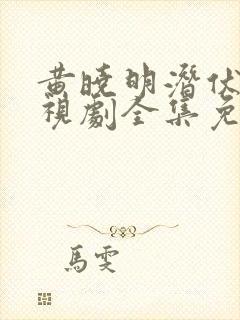 黄晓明潜伏
視劇全集免
馬雯